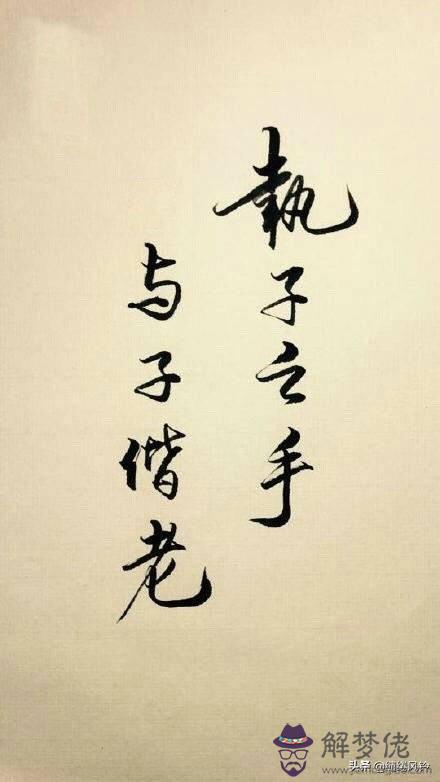 執子之手
与子偕老
解梦佬